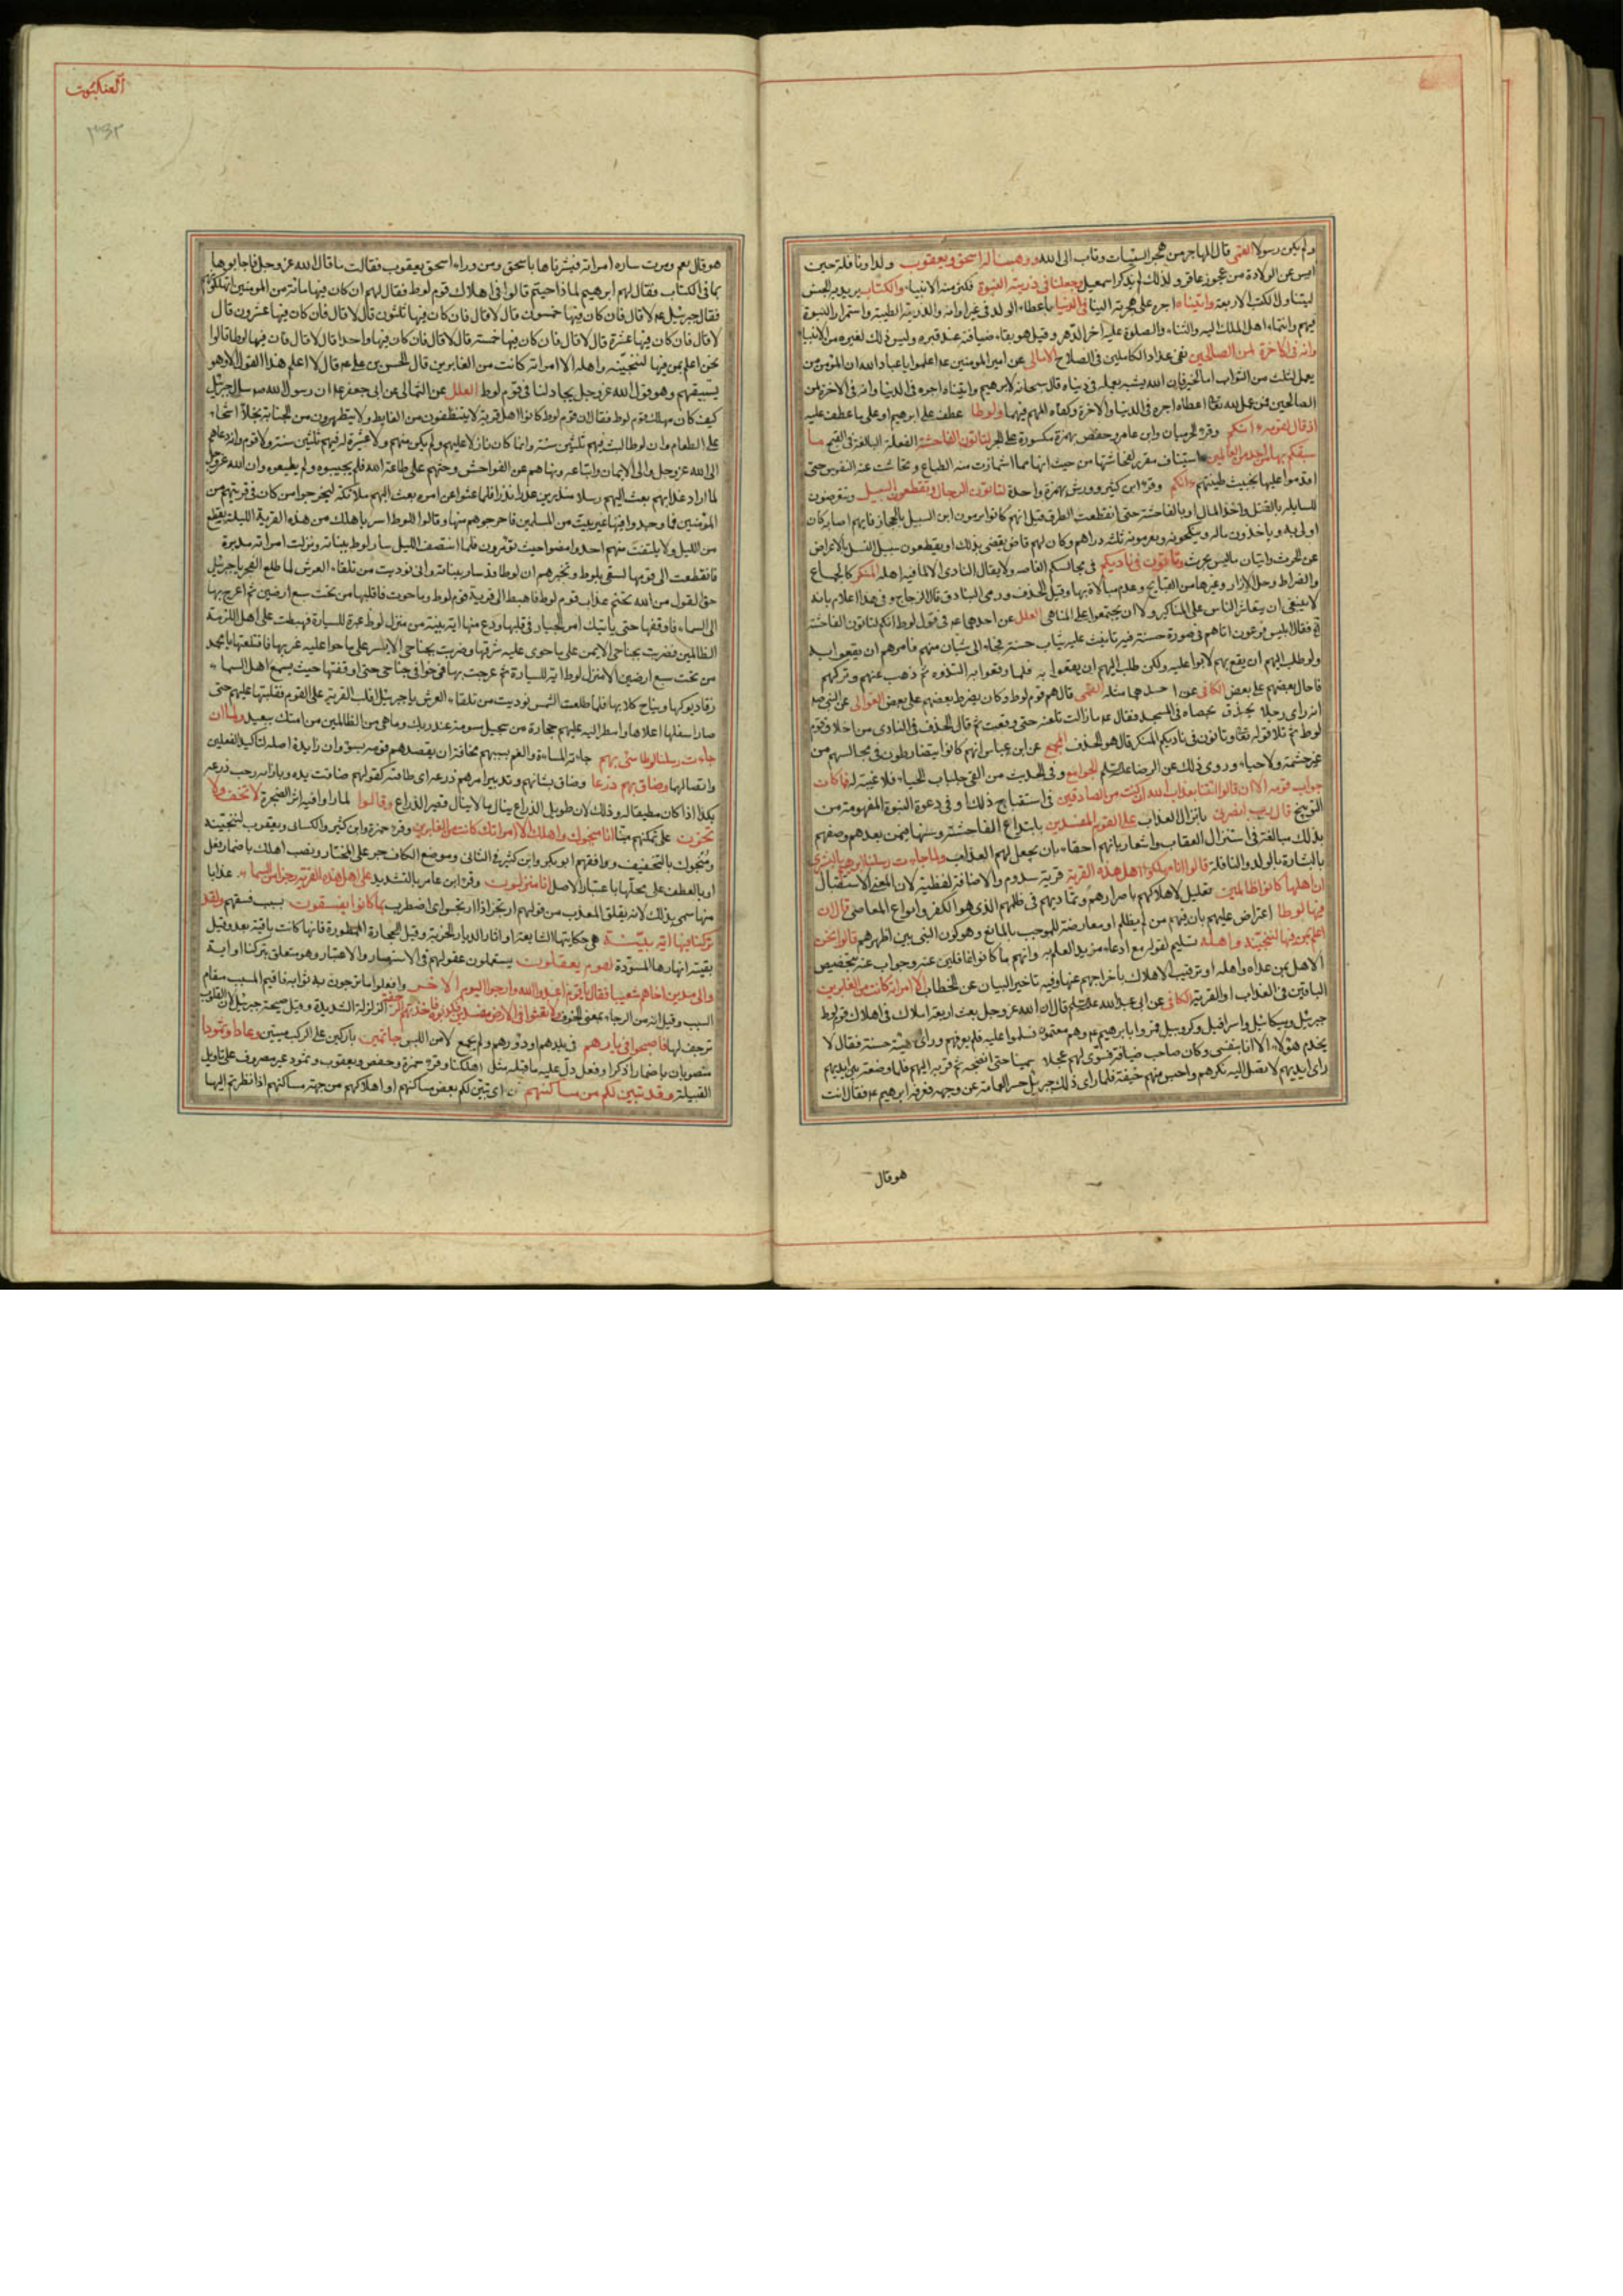 ولم يكن رسولا القمى قال المهاجر من هجر السيئات وتاب الى الله ووهبنا له اسحق ويعقوب ولدا ونافلة حين
ايس عن الولادة من عجوز عاقر ولذلك لم يذكر اسمعيل وجعلنا فى ذريته النبوة فكثر منه الانبياء والكتاب يريد به الجنس
ليتناول الكتب الاربعة واتيناه اجره على هجرته الينا فى الدنيا باعطاء الولد فى غير اوانه والذرية الطيبة واستمرار النبوة
فيهم وانتماء اهل الملل اليه والثناء والصلوة عليه اخر الدهر وقيل هو بقاء ضيافته عند قبره وليس ذلك لغيره من الانبياء
وانه فى الاخرة لمن الصالحين لفى عداد الكاملين فى الصلاح الامالى عن امير المومنين ع اعلموا يا عباد الله ان المؤمن من
يعمل لثلث من الثواب اما لخير فان الله يثيبه بعمله فى دنياه قال سبحانه لابرهيم واتيناه اجره فى الدنيا وانه فى الاخرة لمن
الصالحين فمن عمل لله تعالى اعطاه اجره فى الدنيا والاخرة وكفاه المهم فيهما ولوطا عطف على ابرهيم او على ما عطف عليه
اذ قال لقومه ائنكم وقرء الحرميان وابن عامر وحفص بهمزة مكسورة على الخبر لتاتون الفاحشة الفعلة البالغة فى القبح ما
سبقكم بها من احد من العالمين استيناف مقرر لفحاشتها من حيث انها مما اشمازت منه الطباع وتحاشت عنه النفوس حتى
اقدموا عليها لخبيث طينتهم ائنكم وقرء ابن كثير وورش بهمزة واحدة لتاتون الرجال وتقطعون السبيل وتتعرضون
للسابلة بالقتل واخذ المال او بالفاحشة حتى انقطعت الطرق قيل انهم كانوا يرمون ابن السبيل بالحجارة فايهم اصابه كان
اولى به وياخذون ماله وينكحونه ويغرمونه ثلثة دراهم وكان لهم قاض يقضى بذلك او يقطعون سبيل النسل بالاعراض
عن الحرث واتيان ما ليس بحرث وتاتون فى ناديكم فى مجالسكم الغاصة ولا يقال النادى الا لما فيه اهله المنكر كالجماع
والضراط وحل الازار وغيرها من القبايح وعدم مبالاة بها وقيل الخذف ورمى البنادق قال الزجاج وفى هذا اعلام بانه
لا ينبغى ان يتعاشر الناس على المناكير ولا ان يجتمعوا على المناهى العلل عن احدهما ع فى قول لوط انكم لتاتون الفاحشة
فقال ابليس اتاهم فى صورة حسنة فيه تانيث عليه ثياب حسنة فجاء الى شبان منهم فامرهم ان يقعوا به
ولو طلب اليهم ان يقع بهم لابوا عليه ولكن طلب اليهم ان يقعوا به فلما وقعوا به التذوه ثم ذهب عنهم وتركهم
فاحال بعضهم على بعض الكافى عن احدهما مثله القمى قال هم قوم لوط وكان يضرط بعضهم على بعض العوالى عن النبى ص
انه راى رجلا يخذف بحصاة فى المسجد فقال ع ما زالت تلعنه حتى وقعت ثم قال الخذف فى النادى من اخلاق قوم
لوط ثم تلا قوله تعالى وتاتون فى ناديكم المنكر قال هو الخذف المجمع عن ابن عباس انهم كانوا يتضارطون فى مجالسهم من
غير حشمة ولا حياء وروى ذلك عن الرضا ع الجوامع وفى الحديث من القى جلباب الحياء فلا غيبة له فما كان
جواب قومه الا ان قالوا ائتنا بعذاب الله ان كنت من الصادقين فى استقباح ذلك او فى دعوة النبوة المفهومة من
التوبيخ قال رب انصرنى بانزال العذاب على القوم المفسدين بابتداع الفاحشة وسنها فيمن بعدهم وصفهم
بذلك مبالغة فى استنزال العقاب واشعار بانهم احقاء بان يعجل لهم العذاب ولما جاءت رسلنا ابرهيم بالبشرى
بالبشارة بالولد والنافلة قالوا انا مهلكوا اهل هذه القرية قرية سدوم والاضافة لفظية لان المعنى الاستقبال
ان اهلها كانوا ظالمين تعليل لاهلاكهم باصرارهم وتماديهم فى ظلمهم الذى هو الكفر وانواع المعاصى قال ان
فيها لوطا اعتراض عليهم بان فيهم من لم يظلم او معارضة للموجب بالمانع وهو كون النبى بين اظهرهم قالوا نحن
اعلم بمن فيها لننجينه واهله تسليم لقوله مع ادعاء مزيد العلم به وانهم ما كانوا غافلين عنه وجواب عنه بتخصيص
الاهل بمن عداه واهله او توقيت الاهلاك باخراجهم عنها وفيه تاخير البيان عن الخطاب الا امراته كانت من الغابرين
الباقين فى العذاب او القرية الكافى عن ابى عبد الله ع قال ان الله عز وجل بعث اربعة املاك فى اهلاك قوم لوط
جبرئيل وميكائيل واسرافيل وكروبيل فمروا بابرهيم ع وهم معتمون فسلموا عليه فلم يعرفهم وراى هيئة حسنة فقال لا
يخدم هؤلاء الا انا بنفسى وكان صاحب ضيافة فشوى لهم عجلا سمينا حتى انضجه ثم قربه اليهم فلما وضعه بين ايديهم
راى ايديهم لا تصل اليه نكرهم واوجس منهم خيفة فلما راى ذلك جبرئيل حسر العمامة عن وجهه فعرفه ابرهيم ع فقال انت
هو قال
العنكبوت
٣٣٢
هو قال نعم ومرت ساره امراته فبشرناها باسحق ومن وراء اسحق يعقوب فقالت ما قال الله عز وجل فاجابوها
بما فى الكتاب فقال لهم ابرهيم لما ذا جئتم قالوا فى اهلاك قوم لوط فقال لهم ان كان فيها مائة من المومنين اتهلكونهم
فقال جبرئيل ع لا قال فان كان فيها خمسون قال لا قال فان كان فيها ثلثون قال لا قال فان كان فيها عشرون قال
لا قال فان كان فيها عشرة قال لا قال فان كان فيها خمسة قال لا قال فان كان فيها واحد قال لا قال فان فيها لوطا قالوا
نحن اعلم بمن فيها لننجينه واهله الا امراته كانت من الغابرين قال الحسن بن على ع قال لا اعلم هذا القول الا وهو
يستبقيهم وهو قول الله عز وجل يجادلنا فى قوم لوط العلل عن الثمالى عن ابى جعفر ع ان رسول الله ص سال جبرئيل
كيف كان مهلك قوم لوط فقال ان قوم لوط كانوا اهل قرية لا يتنظفون من الغايط ولا يتطهرون من الجنابة بخلاء اشحاء
على الطعام وان لوطا لبث فيهم ثلثين سنة وانما كان نازلا عليهم ولم يكن منهم ولا عشيرة له فيهم ولا قوم وانه دعاهم
الى الله عز وجل والى الايمان واتباعه ونهاهم عن الفواحش وحثهم على طاعة الله فلم يجيبوه ولم يطيعوه وان الله عز وجل
لما اراد عذابهم بعث اليهم رسلا منذرين عذرا نذرا فلما عتوا عن امره بعث اليهم ملائكة ليخرجوا من كان فى قريتهم من
المؤمنين فما وجدوا فيها غير بيت من المسلمين فاخرجوهم منها وقالوا للوط اسر باهلك من هذه القرية الليلة بقطع
من الليل ولا يلتفت منهم احد وامضوا حيث تؤمرون فلما انتصف الليل سار لوط ببناته وتولت امراته مدبرة
فانقطعت الى قومها تسعى بلوط وتخبرهم ان لوطا قد سار ببناته وانى نوديت من تلقاء العرش لما طلع الفجر يا جبرئيل
حق القول من الله بحتم عذاب قوم لوط فاهبط الى قرية قوم لوط وما حوت فاقلبها من تحت سبع ارضين ثم اعرج بها
الى السماء فاوقفها حتى ياتيك امر الجبار فى قلبها ودع منها اية بينة من منزل لوط عبرة للسيارة فهبطت على اهل القرية
الظالمين فضربت بجناحى الايمن على ما حوى عليه شرقها وضربت بجناحى الايسر على ما حوا عليه غربها فاقتلعتها يا محمد
من تحت سبع ارضين الا منزل لوط اية للسيارة ثم عرجت بها فى خوافى جناحى حتى اوقفتها حيث يسمع اهل السماء
زقاء ديوكها ونباح كلابها فلما طلعت الشمس نوديت من تلقاء العرش يا جبرئيل اقلب القرية على القوم فقلبتها عليهم حتى
صار اسفلها اعلاها وامطر الله عليهم حجارة من سجيل مسومة عند ربك وما هى من الظالمين من امتك ببعيد ولما ان
جاءت رسلنا لوطا سىء بهم جاءته المساءة والغم بسببهم مخافة ان يقصدهم قومه بسوء وان زايدة اصله لتاكيد الفعلين
واتصالهما وضاق بهم ذرعا وضاق بشانهم وتدبير امرهم ذرعه اى طاقته كقولهم ضاقت يده وبازائه رحب ذرعه
بكذا اذا كان مطيقا له وذلك لان طويل الذراع ينال ما لا ينال قصير الذراع وقالوا لما راوا فيه اثر الضجرة لا تخف ولا
تحزن على تمكنهم منا انا منجوك واهلك الا امراتك كانت من الغابرين وقرء حمزة وابن كثير والكسائى ويعقوب لننجينه
ومنجوك بالتخفيف ووافقهم ابو بكر وابن كثير فى الثانى وموضع الكاف جر على المختار ونصب اهلك باضمار فعل
او بالعطف على محلها باعتبار الاصل انا منزلون وقرء ابن عامر بالتشديد على اهل هذه القرية رجزا من السماء عذابا
منها سمى بذلك لانه يقلق المعذب من قولهم ارتجز اذا ارتجس اى اضطرب بما كانوا يفسقون بسبب فسقهم ولقد
تركنا منها اية بينة هى حكايتها الشايعة او اثار الديار الخربة وقيل الحجارة الممطورة فانها كانت باقية بعد وقيل
بقية انهارها المسودة لقوم يعقلون يستعملون عقولهم فى الاستبصار والاعتبار وهو متعلق بتركنا او اية
والى مدين اخاهم شعيبا فقال يا قوم اعبدوا الله وارجوا اليوم الاخر وافعلوا ما ترجون به ثوابه فاقيم المسبب مقام
السبب وقيل انه من الرجاء بمعنى الخوف ولا تعثوا فى الارض مفسدين فكذبوه فاخذتهم الرجفة الزلزلة الشديدة وقيل صيحة جبرئيل لان القلوب
ترجف لها فاصبحوا فى دارهم فى بلدهم او دورهم ولم يجمع لامن اللبس جاثمين باركين على الركب ميتين وعادا وثمودا
منصوبان باضمار اذكر او فعل دل عليه ما قبله مثل اهلكنا وقرء حمزة وحفص ويعقوب وثمود غير مصروف على تاويل
القبيلة وقد تبين لكم من مساكنهم اى تبين لكم بعض مساكنهم او اهلاكهم من جهة مساكنهم اذا نظرتم اليها